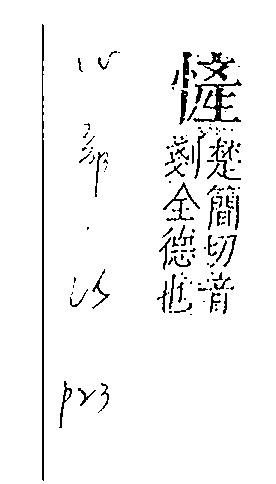 㦃
楚簡切音
剗全德也
心部. p23